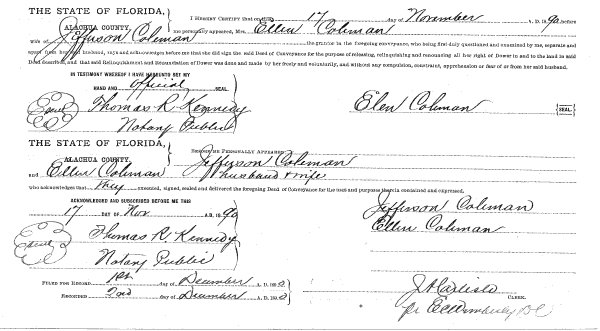 THE STATE OF FLORIDA,
ALACHUA COUNTY.
I HEREBY CERTIFY that on this 17 day of November A. D. 1890 before
me personally appeared, Mrs. Ellen Coleman
wife of Jefferson Coleman the grantor in the foregoing conveyance, who being first duly questioned and examined by me, separate and
apart from her said husband, says and acknowledges before me that she did sign the said Deed of Conveyance for the purpose of releasing, relinquishing and renouncing all her right of Dower in and to the land in said
Deed described, and that said Relinquishment and Renunciation of Dower was done and made by her freely and voluntarily, and without any compulsion, constraint, apprehension or fear of or from her said husband.
IN TESTIMONY WHEREOF I HAVE HEREUNTO SET MY
HAND AND official SEAL.
Seal Thomas R. Kennedy Elen Coleman SEAL.
Notary Public
THE STATE OF FLORIDA,
ALACHUA COUNTY.
BEFORE ME PERSONALLY APPEARED Jefferson Coleman
and Ellen Coleman husband & wife
who acknowledges that they executed, signed, sealed and delivered the foregoing Deed of Conveyance for the uses and purposes therein contained and expressed.
ACKNOWLEDGED AND SUBSCRIBED BEFORE ME THIS
17 DAY OF Nov A. D. 1890
Jefferson Coleman
Ellen Coleman
Seal Thomas R. Kennedy
Notary Public
FILED FOR RECORD 1st day of December A. D. 1890
RECORDED 2nd day of December A. D. 1890
J A Carlisle CLERK.
pr DC